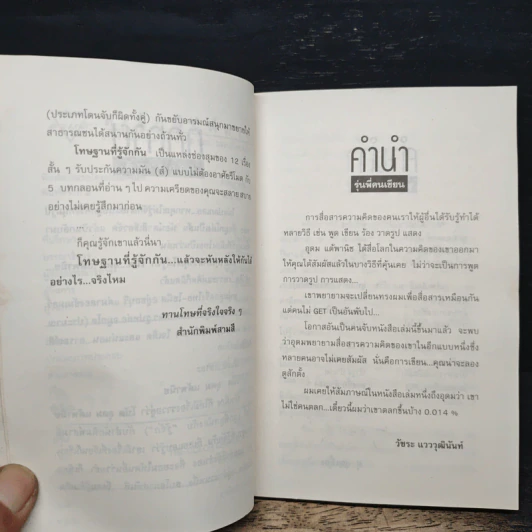 (ประเภทโดนจับก็ผิดทั้งคู่) กันขยับอารมณ์สนุกมาขยายให้
สาธารณชนได้สนานกันอย่างถ้วนทั่ว
โทษฐานที่รู้จักกัน เป็นแหล่งซ่องสุมของ 12 เรื่อง
สั้น ๆ รับประกันความมัน (ส์) แบบไม่ต้องอาศัยรีโมต
5 บทตลอนที่อ่าน ๆ ไป ความเครียดของคุณจะสลาย สบาย
อย่างไม่เคยรู้สึกมาก่อน
ก็คุณรู้จักเขาแล้วนี่นา
โทษฐานที่รู้จักกัน...แล้วจะหันหลังให้กันได้
อย่างไร...จริงไหม
ทานโทษที่จริงใจจริง ๆ
สำนักพิมพ์สามสี
คำนำ
รุ่นพี่คนเขียน
การสื่อสารความคิดของคนเราให้ผู้อื่นได้รับรู้ทำได้
หลายวิธี เช่น พูด เขียน ร้อง วาดรูป แสดง
อุดม แต้พานิช ได้สื่อโลกในความคิดของเขาออกมา
ให้คุณได้สัมผัสแล้วในบางวิธีที่คุ้นเคย ไม่ว่าจะเป็นการพูด
การวาดรูป การแสดง...
เขาพยายามจะเปลี่ยนทรงผมเพื่อสื่อสารเหมือนกัน
แต่คนไม่ GET เป็นอันพับไป...
โอกาสอันเป็นคนจับหนังสือเล่มนี้ขึ้นมาแล้ว จะพบ
ว่าอุดมพยายามสื่อสารความคิดของเขาในอีกแบบหนึ่งซึ่ง
หลายคนอาจไม่เคยสัมผัส นั่นคือการเขียน...คุณน่าจะลอง
ดูสักตั้ง
ผมเคยให้สัมภาษณ์ในหนังสือเล่มหนึ่งถึงอุดมว่า เขา
ไม่ใช่คนตลก...เดี๋ยวนี้ผมว่าเขาตลกขึ้นบ้าง 0.014 %
วัชระ แวววุฒินันท์